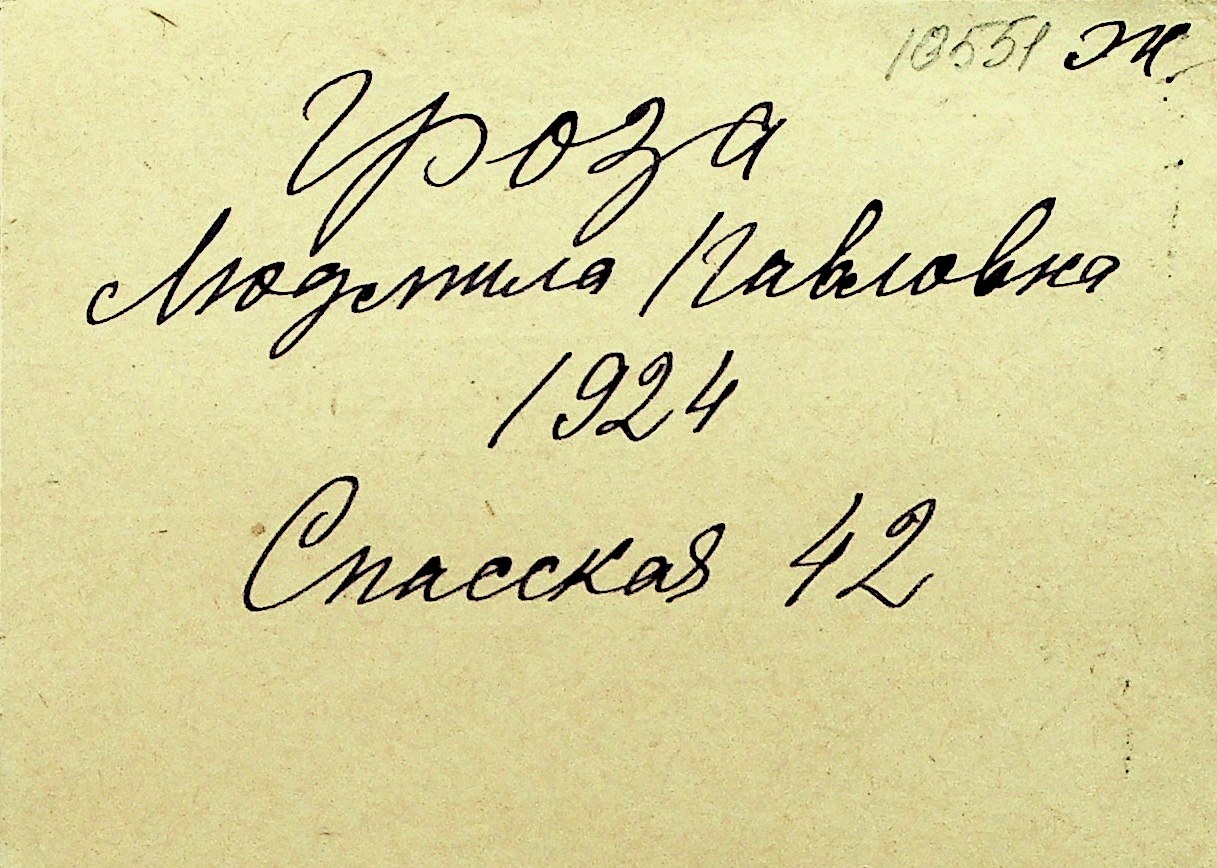 10551 Ж.
Гроза
Людмила Павловна
1924
Спасская 42